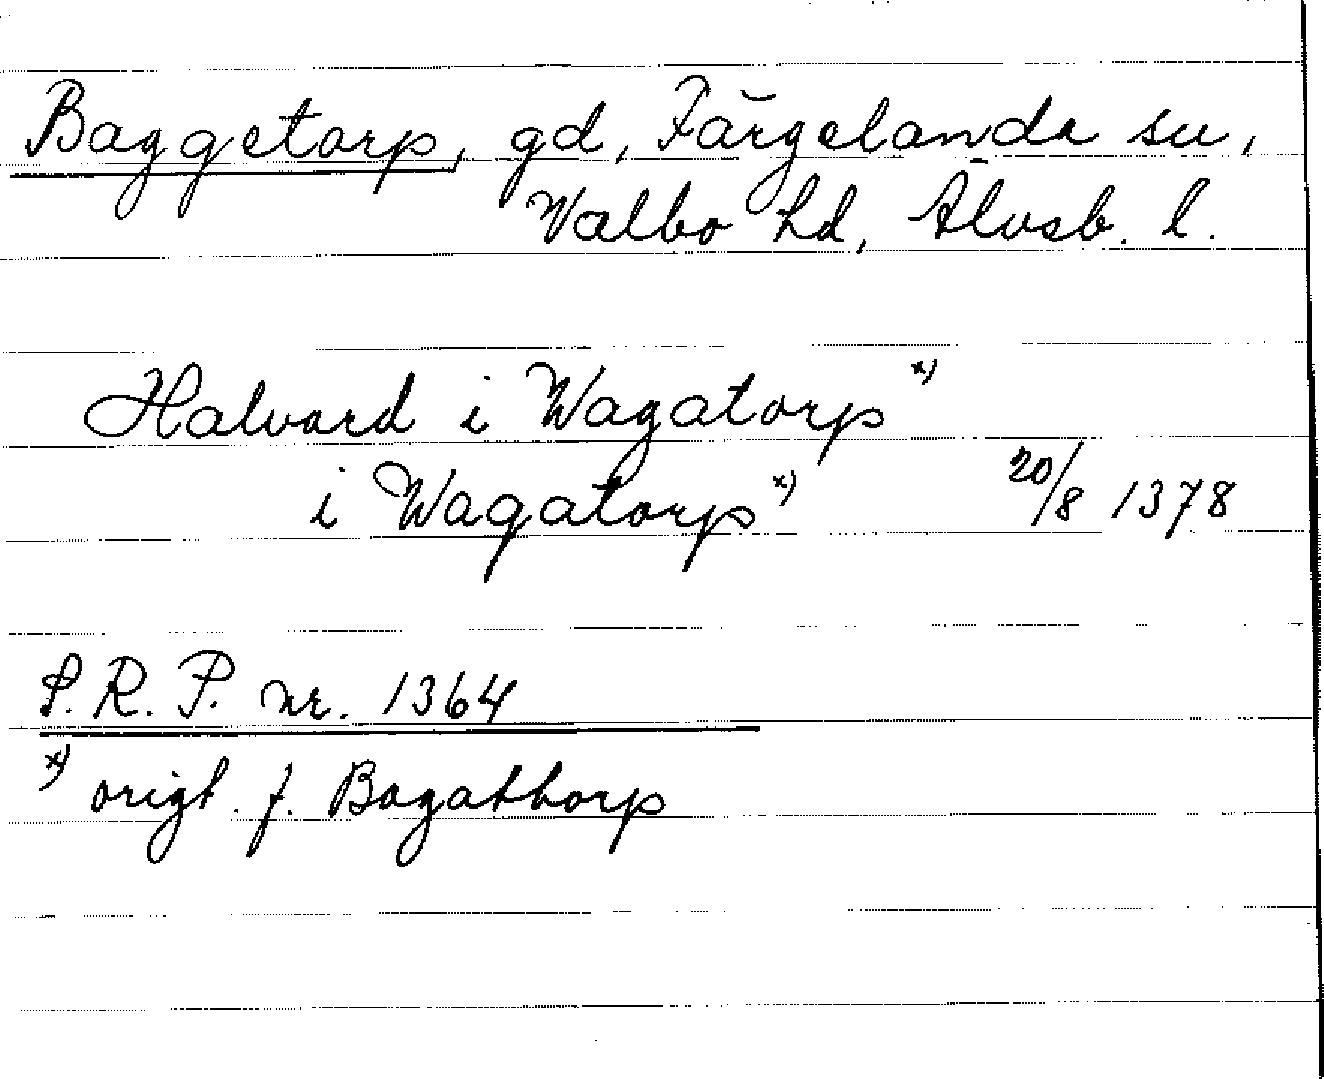 Baggetorp, gd, Färgelanda sn,
Valbo hd, Älvsb. l.
Halvard i Wagatorp x)
i Wagatorp x) 20/8 1378
S.R.P. nr. 1364
x) origt. f. Bagathorp